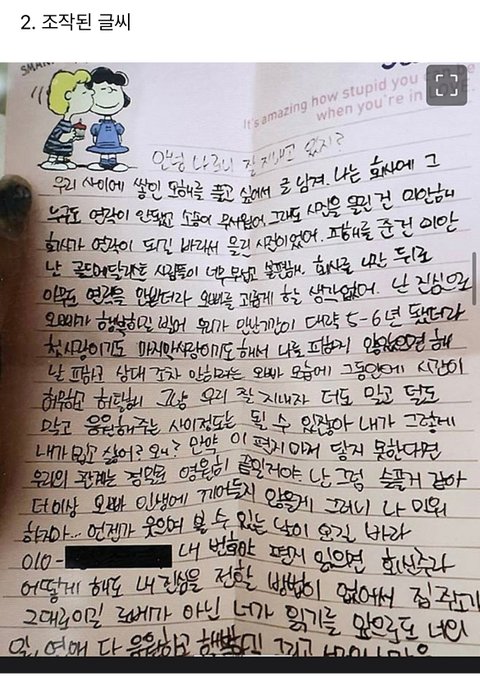 2. 조작된 글씨
It's amazing how stupid you can be
when you're in
안녕 나르니 잘 지내고 있지?
우리 사이에 쌓인 오해를 풀고 싶어서 글 남겨. 나는 회사에 그
누구도 연락이 안됐고 소송이 무서웠어 그래도 사진을 올린 건 미안해
회사가 연락이 되길 바라서 올린 사진이었어. 피해를 준건 미안
난 골드메달리스트 사람들이 너무 무섭고 불편해. 회사를 나간 뒤로
아무도 연락을 안받더라 오빠를 괴롭게 할 생각없어. 난 진심으로
오빠가 행복하길 빌어 우리가 만난기간이 대략 5-6년 됐더라
첫사랑이기도 마지막사랑이기도 해서 나를 피하지 않았으면 해
날 피하고 상대 조차 안하려는 오빠 모습에 그동안에 시간이
허무하고 허탈해 그냥 우리 잘 지내자 더도 말고 덜도
말고 응원해주는 사이정도는 될 수 있잖아 내가 그렇게
내가 밉고 싫어? 왜? 만약 이 편지마저 닿지 못한다면
우리의 관계는 정말로 영원히 끝일거야. 난 그럼 슬플거 같아
더이상 오빠 인생에 끼어들지 않을게 그러니 나 미워
하지마... 언젠가 웃으며 볼 수 있는 날이 오길 바라
010- 내 번호야 편지 읽으면 회신주라
어떻게 해도 내 진심을 전할 방법이 없어서 집 주소가
그대로이길 로베가 아닌 너가 읽기를 앞으로도 너의
일, 연애 다 응원하고 그리고